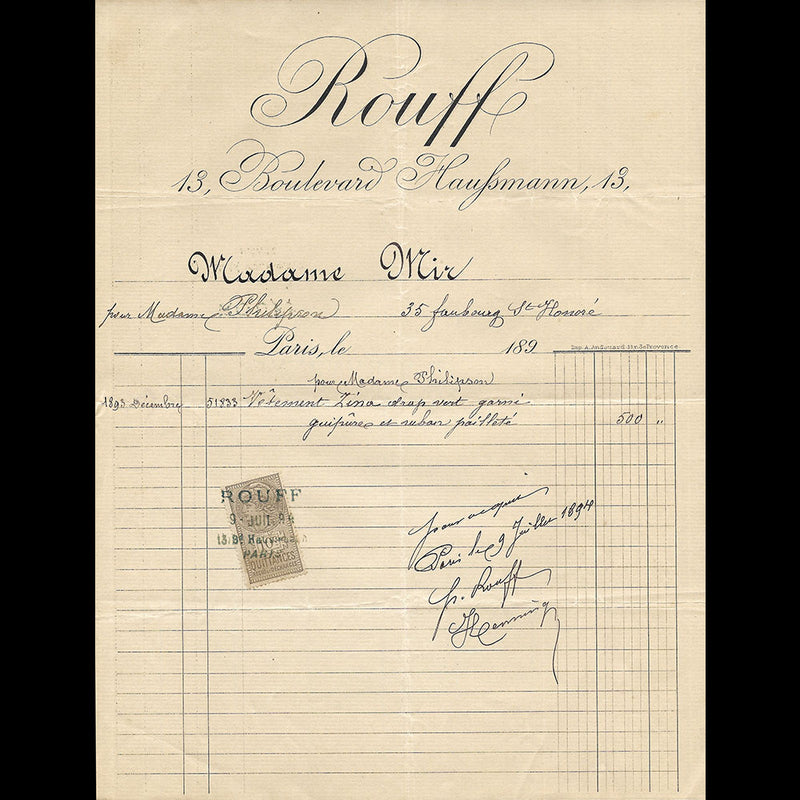 Rouff
13, Boulevard Haußmann, 13,
Madame Mir
pour Madame Philipson 35 faubourg St Honoré
Paris, le 189
pour Madame Philipson
1893 Décembre 51833 Vêtement Zina drap vert garni
guipûre et ruban pailleté 500 "
ROUFF
9 - JUIL 94
13. Bd Haussmann
PARIS
QUITTANCES
pour acquit
Paris le 9 Juillet 1894
p. Rouff
Henning